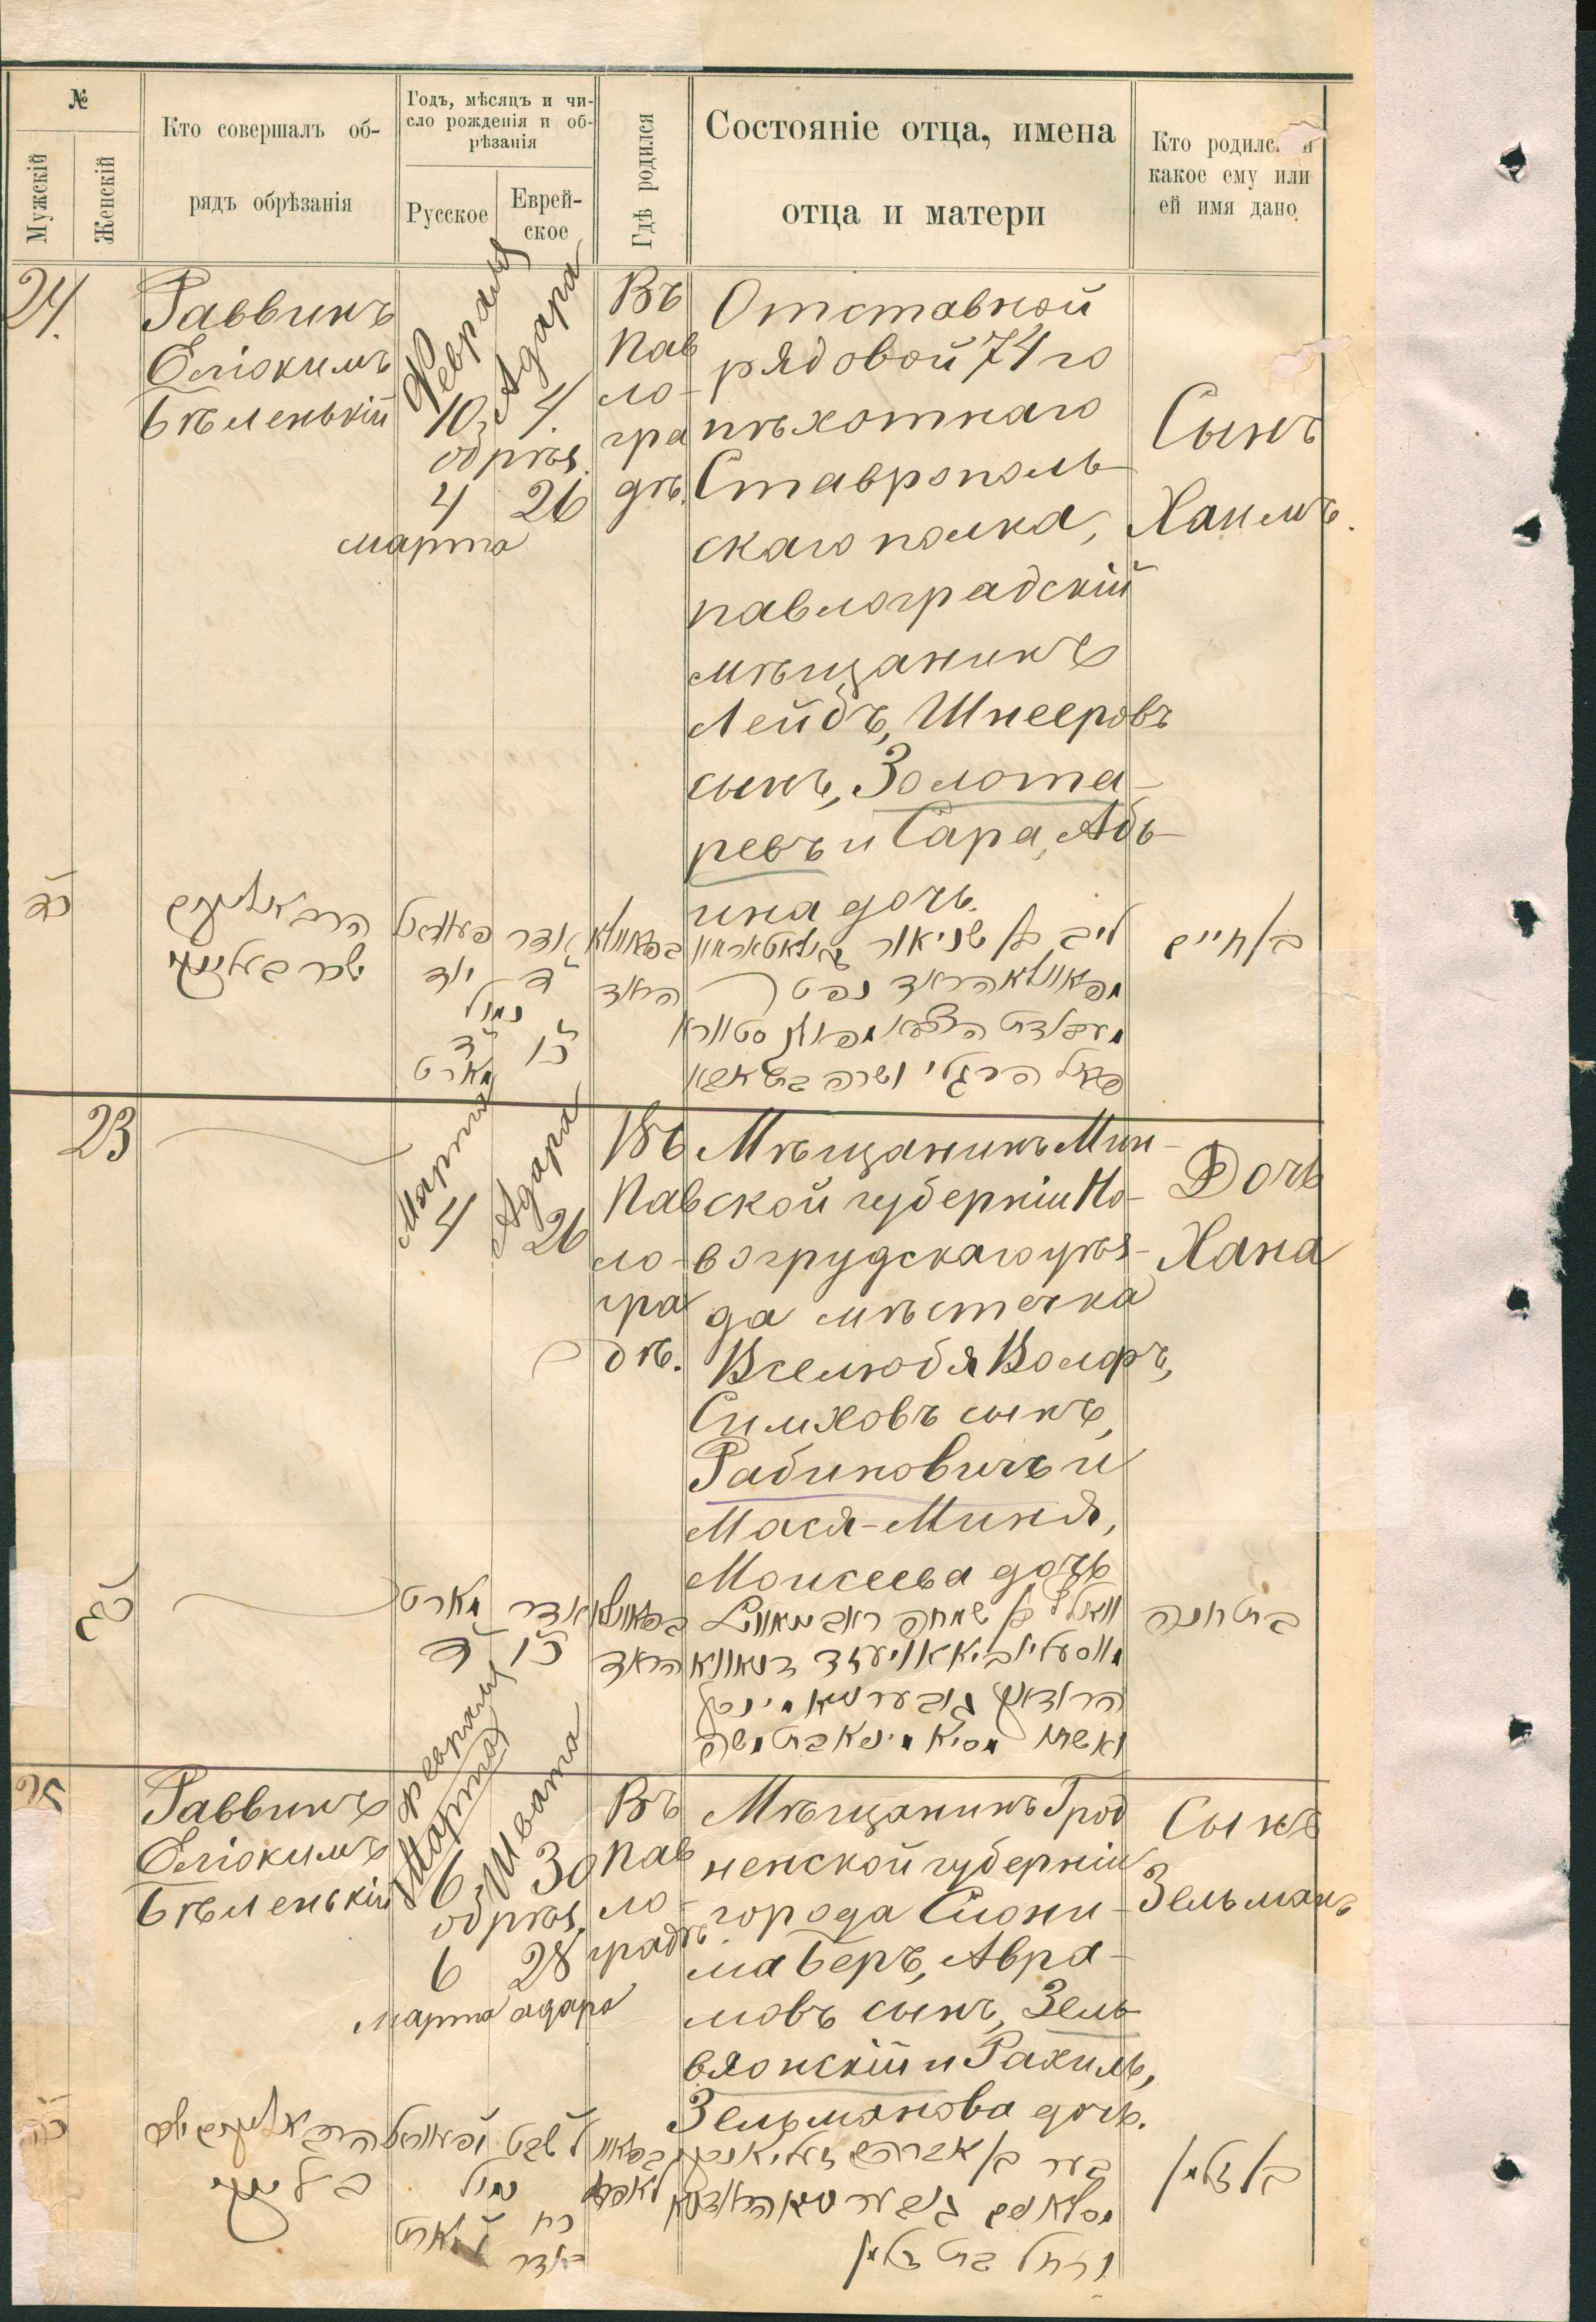 №
Мужскій
Женскій
Кто совершалъ об-
рядъ обрѣзанія
Годъ, мѣсяцъ и чи-
сло рожденія и об-
рѣзанія
Русское
Еврей-
ское
Гдѣ родился
Состояніе отца, имена
отца и матери
Кто родился и
какое ему или
ей имя дано
24.
Раввинъ
Еліокимъ
Бѣленькій
Февраля
10
Адара
4.
обрѣз.
4
26
марта
Въ
Пав
ло-
гра
дѣ.
Отставной
рядовой 74го
пѣхотнаго
Ставрополь-
скаго полка,
павлоградскій
мѣщанинъ
Лейбъ, Шнееровъ
сынъ, Золота-
ревъ и Сара, Абь-
ина дочь.
Сынъ
Хаимъ.
כד
אדר
ליב בן שניאור
בן חיים
נמול
כו
מארט
23
Марта
4
Адара
26
Въ
Пав
ло-
гра
дѣ.
Мѣщанинъ Мин-
ской губерніи Но-
вогрудскаго уѣз-
да мѣстечка
Вселюбя Вольфъ,
Симховъ сынъ,
Рабиновичъ и
Мася-Миня,
Моисеева дочь
Дочь
Хана
מארט
אדר
כו
בת חנה
25
Раввинъ
Еліокимъ
Бѣленькій
Февраля
Марта
6
Швата
30
обрѣз.
6
28
марта адара
Въ
Пав
ло-
градѣ
Мѣщанинъ Грод
ненской губерніи
города Слони-
ма Беръ, Авра-
мовъ сынъ, Зель-
вянскій и Рахиль,
Зельманова дочь.
Сынъ
Зельманъ
כה
שבט
נמול
כח
מארט
אדר
בער בן אברהם
ורחל בת זלמן
בן זלמן